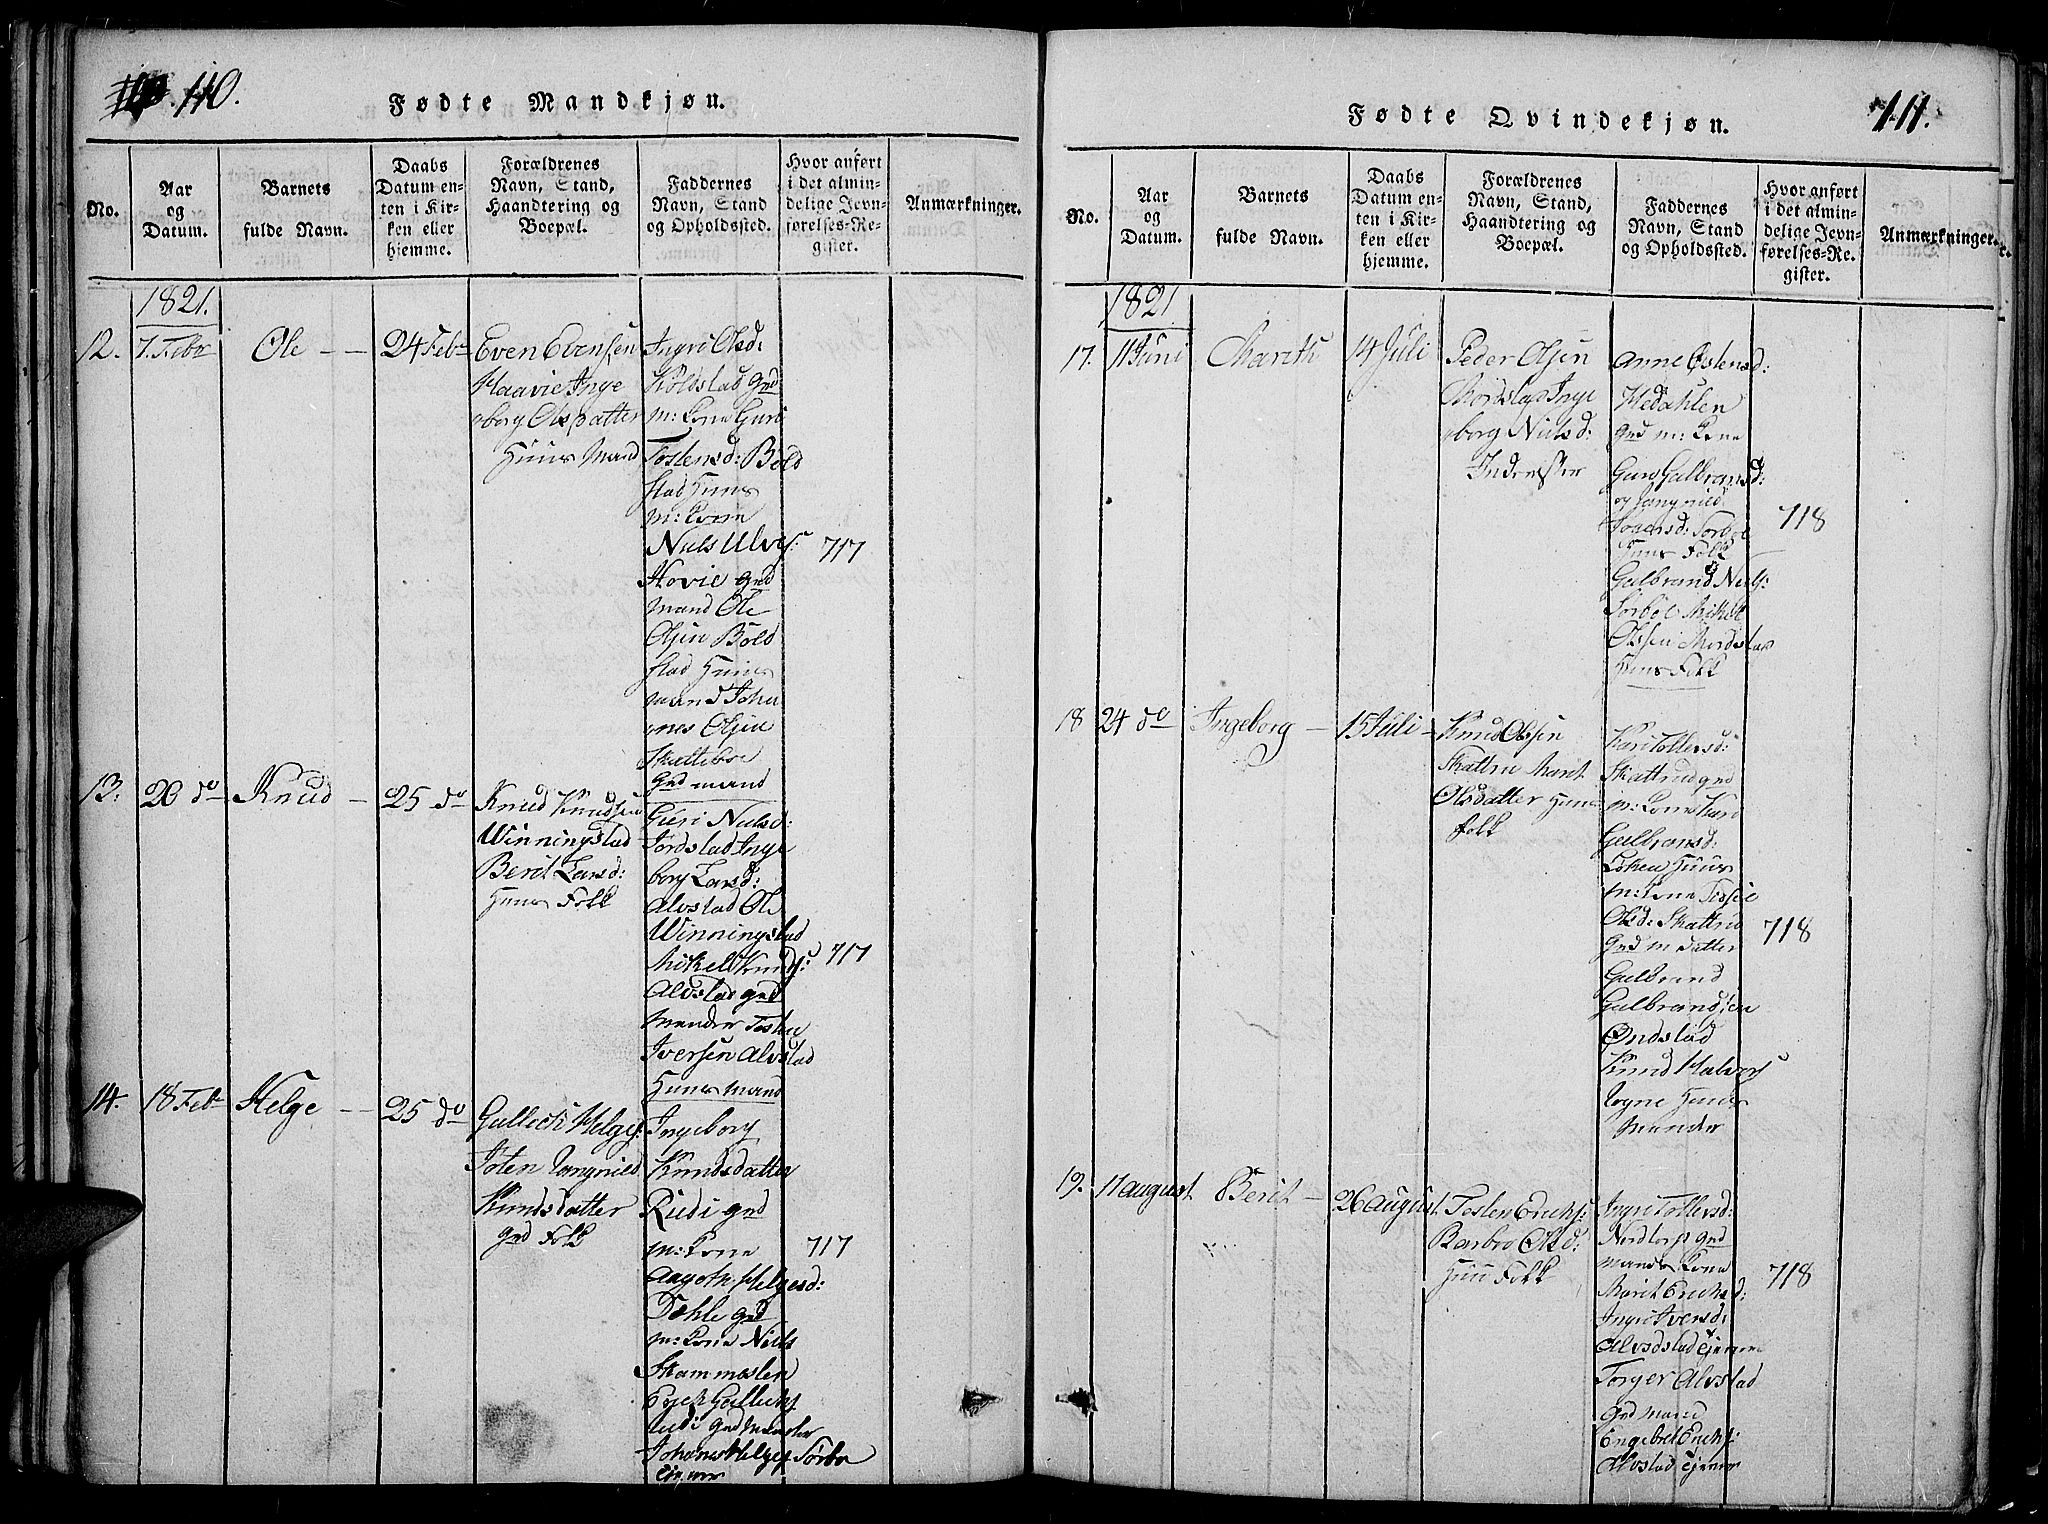 110.
Fødte Mandkjøn.
No.
Aar
og
Datum.
Barnets
fulde Navn.
Daabs
Datum en-
ten i Kir-
ken eller
hjemme.
Forældrenes
Navn, Stand,
Haandtering og
Boepæl.
Faddernes
Navn, Stand
og Opholdssted.
Hvor anført
i det almin-
delige Jevn-
førelses-Re-
gister.
Anmærkninger.
1821.
12.
7. Febr
Ole
24 Febr
Even Evensen
Haavie Inge
borg Olsdatter
Huus Mand
Ingri Olsd:
Koldstad Grd
m: Kone Guri
Tostensd: Bold
stad Huus
m: Kone
Niels Ulvs:
Hovie Grd
mand Ole
Olsen Bold
stad Huus
mand Joha
nes Olsen
Skatteboe
Grd mand
717
13.
20 do
Knud
25 do
Knud Knudsen
Winningstad
Berit Larsd:
Huus Folk
Guri Nielsd:
Jordstad Inge
borg Larsd:
Alvstad Ole
Winningstad
Mikel Knuds:
Alvstad Grd
Mænder Tosten
Iversen Alvstad
Huus mand
717
14.
18 Feb
Helge
25 do
Gulleck Helges:
Joten Rangnild
Knudsdatter
Grd Folk
Ingeborg
Knudsdatter
Rudi Grd
m: Kone
Aagoth Helgesd:
Dæhle Grd
m: Kone Niels
Skammesten
Erick Gullicks
Rudi Grd Mænder
Johanes Helges Sørbø
Ejener
717
111.
Fødte Qvindekjøn.
No.
Aar
og
Datum.
Barnets
fulde Navn.
Daabs
Datum en-
ten i Kir-
ken eller
hjemme.
Forældrenes
Navn, Stand,
Haandtering og
Boepæl.
Faddernes
Navn, Stand
og Opholdssted.
Hvor anført
i det almin-
delige Jevn-
førelses-Re-
gister.
Anmærkninger.
1821
17.
11 Juni
Marith
14 Juli
Peder Olsen
Mordstad Inge
borg Nielsd:
Inderster
Anne Østensd:
Hedahlen
Grd m: Kone
Guri Gulbransd:
og Rangnild
Iversd: Sørbøe
Huus Folk
Gulbrand Niels:
Sørbøe Mikel
Olssen Mordstad
Huus Folk
718
18
24 do
Ingeborg
15 Juli
Knud Olssen
Skattru Marit
Olsdatter Huus
folk
Kari Tollersd:
Skattrud Grd
m: Kone Kari
Gulbransd:
Løken Huus
m: Kone
Olsd: Skattrud
Grd m datter
Gulbrand
Gulbrandsen
Øndstad
Knud Halvors
Rogne Huus
Mænder
718
19.
11 august
Berit
26 august
Tosten Ericks:
Barbro Olsd:
Huus Folk
Ingri Tollersd:
Nordtorp Grd
mands Kone
Marit Ericksd:
Ingri Iversd:
Alvsdstad Ejener
Torger Alvstad
Grd mand
Engebret Ericks:
Alvstad Ejener
718